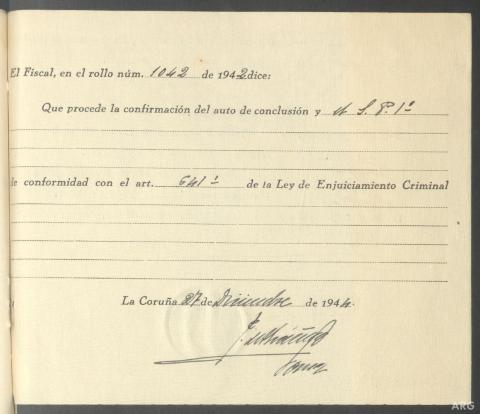 El Fiscal, en el rollo núm. 1042 de 1942 dice:
Que procede la confirmación del auto de conclusión y el S. P. 1º
de conformidad con el art. 641-1º de la Ley de Enjuiciamiento Criminal
La Coruña 27 de Diciembre de 1944.
ARG